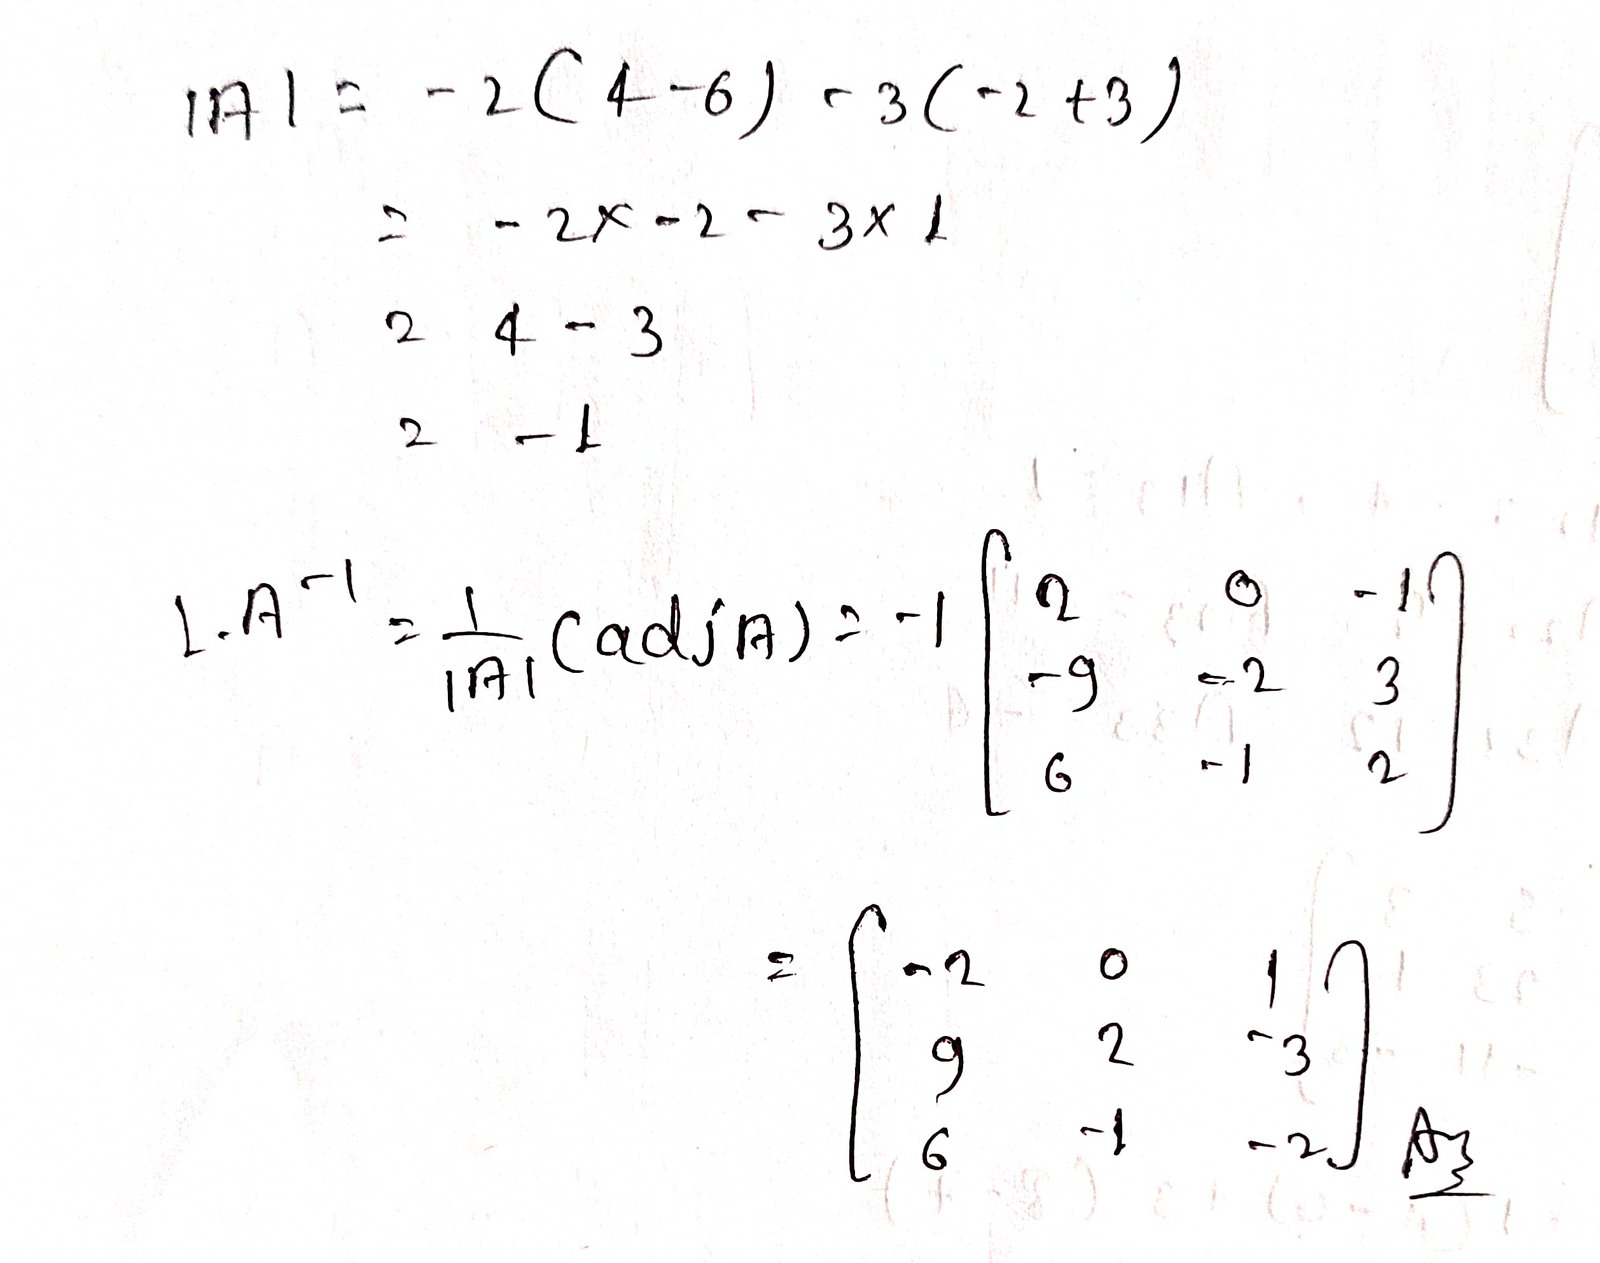 |A| = -2(4-6) - 3(-2+3)
= -2x-2 - 3x1
= 4 - 3
= -1
1. A⁻¹ = 1/|A| (adj A) = -1 [ 2 0 -1
-9 -2 3
6 -1 2 ]
= [ -2 0 1
9 2 -3
6 -1 -2 ] Ans